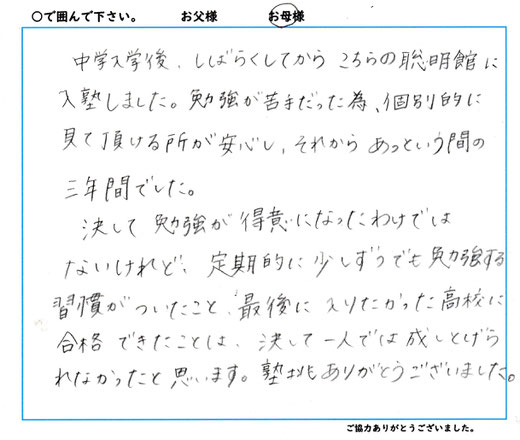 ○で囲んで下さい。 お父様 お母様
中学入学後、しばらくしてから こちらの聡明館に
入塾しました。勉強が苦手だった為、個別的に
見て頂ける所が安心し、それから あっという間の
三年間でした。
決して 勉強が 得意になったわけでは
ないけれど、定期的に少しずつでも勉強する
習慣がついたこと、最後に入りたかった高校に
合格できたことは、決して一人では成しとげら
れなかったと思います。 ありがとうございました。
ご協力ありがとうございました。